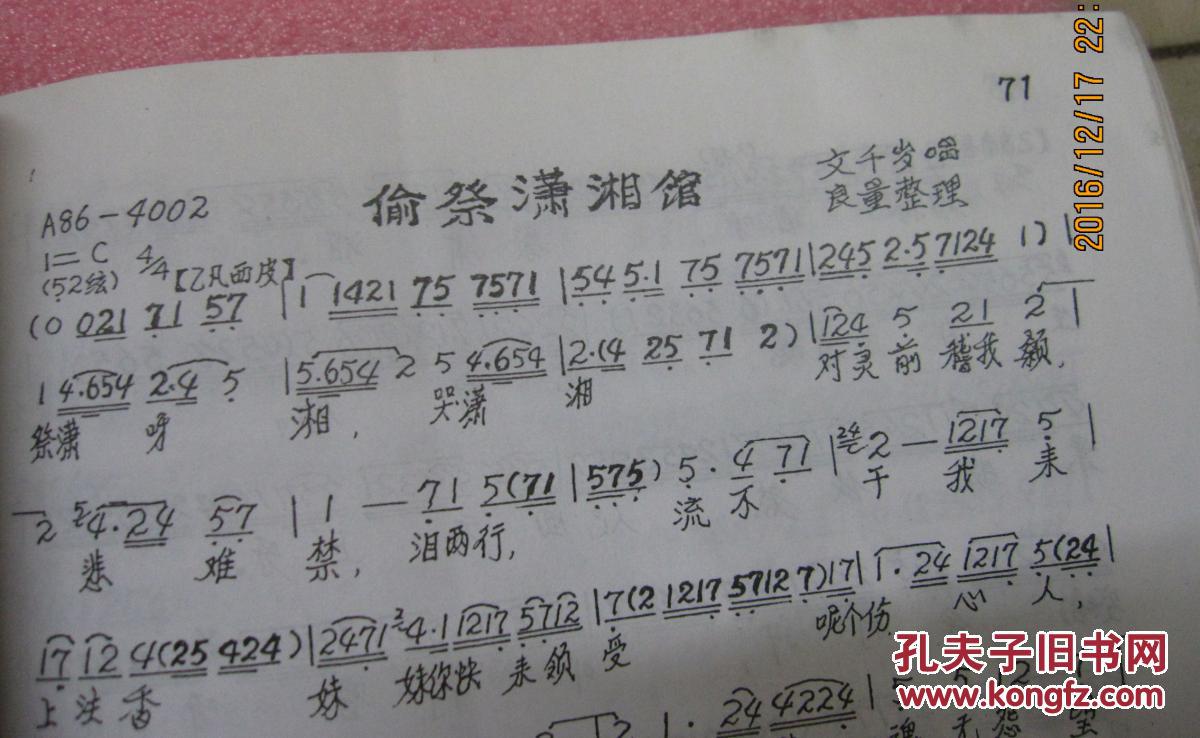 71
偷祭潇湘馆
文千岁唱
良量整理
A86-4002
1=C 4/4【乙凡西皮】
(52弦)
(0 021 71 57 | 1 1421 75 7571 | 54 5·1 75 7571 | 245 2·5 7124 1) |
1 4·654 2·4 5 | 5·654 2 5 4·654 | 2·(4 25 71 2) | 124 5 21 2 |
祭潇 呀 湘, 哭潇 湘 对灵前 稽我颡,
2 4·24 57 | 1 — 71 5(71 | 575) 5· 4 71 | 2 — 1217 5 |
悲 难 禁, 泪两行, 流 不 干 我 来
17 12 4(25 424) | 2471 4·1 1217 5712 | 7(2 1217 5712 7)17 | 1·24 1217 5(24 |
上注香 妹 妹你快来领 受 呢个伤 心 人,
2016/12/17 22:
孔夫子旧书网
www.kongfz.com